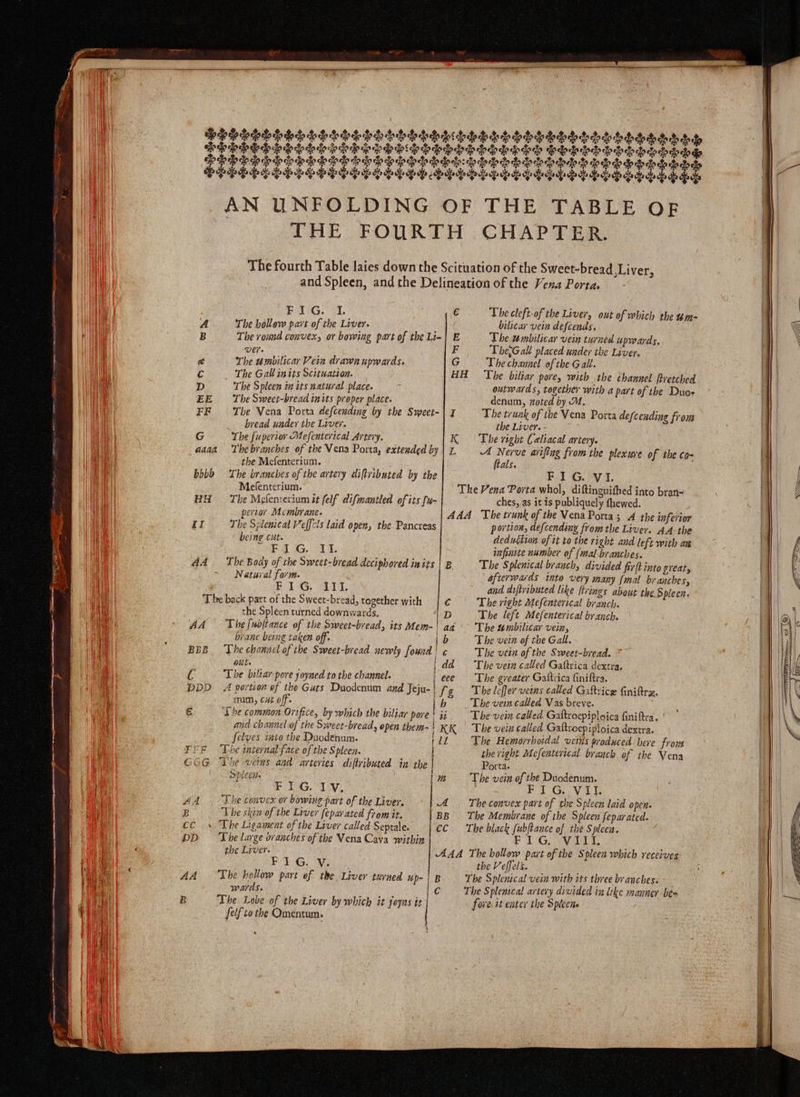 AN UNFOLDING OF THE TABLE OF
THE FOURTH CHAPTER.
The fourth Table laies down the Scituation of the Sweet-bread, Liver,
and Spleen, and the Delineation of the Vena Porta.
FIG. I.
A The hollow part of the Liver.
B The round convex, or bowing part of the Li-
ver.
The umbilicar Vein drawn upwards.
C The Gall in its Scituation.
D The Spleen in its natural place.
EE The Sweet-bread in its proper place.
FF The Vena Porta descending by the Sweet-
bread under the Liver.
G The superior Mesenterical Artery.
aaaa The branches of the Vena Porta, extended by
the Mesenterium.
bbbb The branches of the artery distributed by the
Mesenterium.
HH The Mesenterium it self dismantled of its su-
perior Membrane.
II The Splenical Vessels laid open, the Pancreas
being cut.
FIG. II.
AA The Body of the Sweet-bread deciphered in its
Natural form.
FIG. III.
The back part of the Sweet-bread, together with
the Spleen turned downwards.
AA The substance of the Sweet-bread, its Mem-
brane being taken off.
BBB The channel of the Sweet-bread newly found
out.
C The biliar pore joyned to the channel.
DDD A portion of the Guts Duodenum and Jeju-
num, cut off.
E The common Orifice, by which the biliar pore
and channel of the Sweet-bread, open them-
selves into the Duodenum.
FFF The internal face of the Spleen.
GGG The veins and arteries distributed in the
Spleen.
FIG. IV.
AA The convex or bowing part of the Liver.
B The skin of the Liver separated from it.
CC The Ligament of the Liver called Septale.
DD The large branches of the Vena Cava within
the Liver.
FIG. V.
AA The hollow part of the Liver turned up-
wards.
B The Lobe of the Liver by which it joyns it
self to the Omentum.
C The cleft of the Liver, out of which the um-
bilicar vein descends.
E The umbilicar vein turned upwards.
F The Gall placed under the Liver.
G The channel of the Gall.
HH The biliar pore, with the channel stretched
outwards, together with a part of the Duo-
denum, noted by M.
I The trunk of the Vena Porta descending from
the Liver.
K The right Celiacal artery.
L A Nerve arising from the plexure of the co-
stals.
FIG. VI.
The Vena Porta whol, distinguished into bran-
ches, as it is publiquely shewed.
AAA The trunk of the Vena Porta; A the inferior
portion, descending from the Liver. AA the
deduction of it to the right and left with an
infinite number of smal branches.
B The Splenical branch, divided first into great,
afterwards into very many smal branches,
and distributed like strings about the Spleen.
C The right Mesenterical branch.
D The left Mesenterical branch.
aa The umbilicar vein,
b The vein of the Gall.
c The vein of the Sweet-bread.
dd The vein called Gastrica dextra.
eee The greater Gastrica sinistra.
fg The lesser veins called Gastricæ sinistræ.
h The vein called Vas breve.
ii The vein called Gastroepiploica sinistra.
KK The vein called Gastroepiploica dextra.
ll The Hemorrhoidal veins produced here from
the right Mesenterical branch of the Vena
Porta.
m The vein of the Duodenum.
FIG. VII.
A The convex part of the Spleen laid open.
BB The Membrane of the Spleen separated.
CC The black substance of the Spleen.
FIG. VIII.
AAA The hollow part of the Spleen which receives
the Vessels.
B The Splenical vein with its three branches.
C The Splenical artery divided in like manner be-
fore it enter the Spleen.